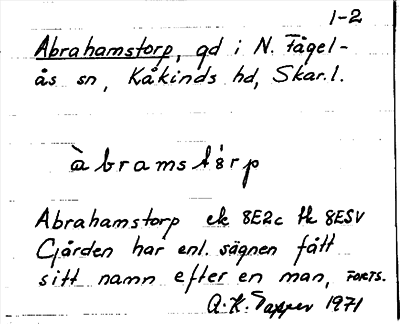 1-2
Abrahamstorp, gd i N. Fågel-
ås sn, Kåkinds hd, Skar.l.
àbramstórp
Abrahamstorp ek 8E2c tk 8ESV
Gården har enl. sägnen fått
sitt namn efter en man, FORTS.
A.K. 1971